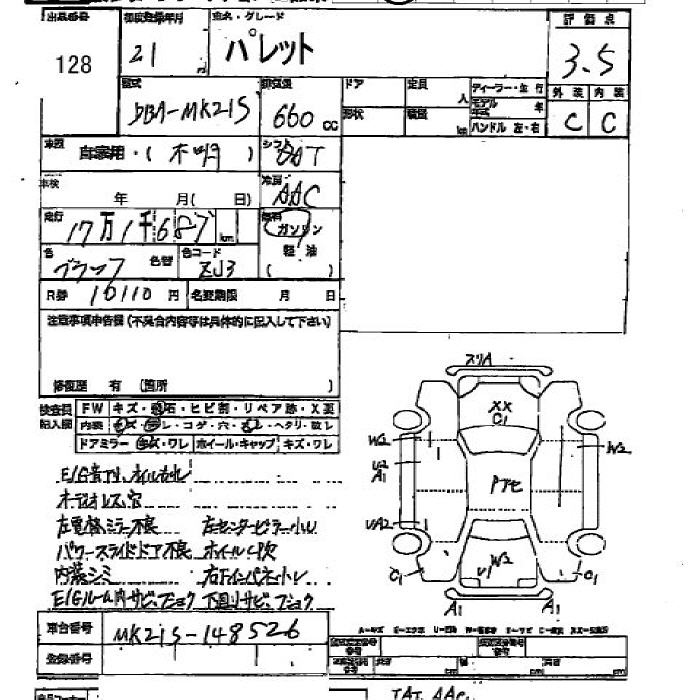 出品番号 初度登録年月 車名・グレード 評価点
128 21 パレット 3.5
型式 排気量 ドア 定員 人 ディーラー・並行 外装 内装
DBA-MK21S 660cc 形状 積載 km モデル 年 C C
ハンドル 左・右
車歴 自家用・( 不明 ) シフト
車検 年 月( 日) 冷房 AAC
走行 17万1千687km 燃料 ガソリン
軽油
色 ブラック 色替 色コード ZJ3 ( )
R券 10110円 名変期限 月 日
注意事項申告欄(不具合内容等は具体的に記入して下さい)
修復歴 有 (箇所 )
検査員 FW キズ・飛石・ヒビ割・リペア跡・X要
記入欄 内装
ドアミラー キズ・ワレ ホイール・キャップ キズ・ワレ
E/G音大、オイルもれ
オーディオレス穴
左電格ミラー不良 左センターピラー小ヒ
パワースライドドア不良 ホイールC欠
内装シミ
E/Gルーム内サビ、フショク 下回りサビ、フショク
スリA
XX
C1
W2
U2
A1
UA2
C1
アセ
W2
U1
W2
C1
A1 A1
A=キズ E=エクボ U=凹み W=補修跡 S=サビ
車台番号 MK21S-148526
登録番号
長さ cm 幅 cm 高さ cm
IAT AAC